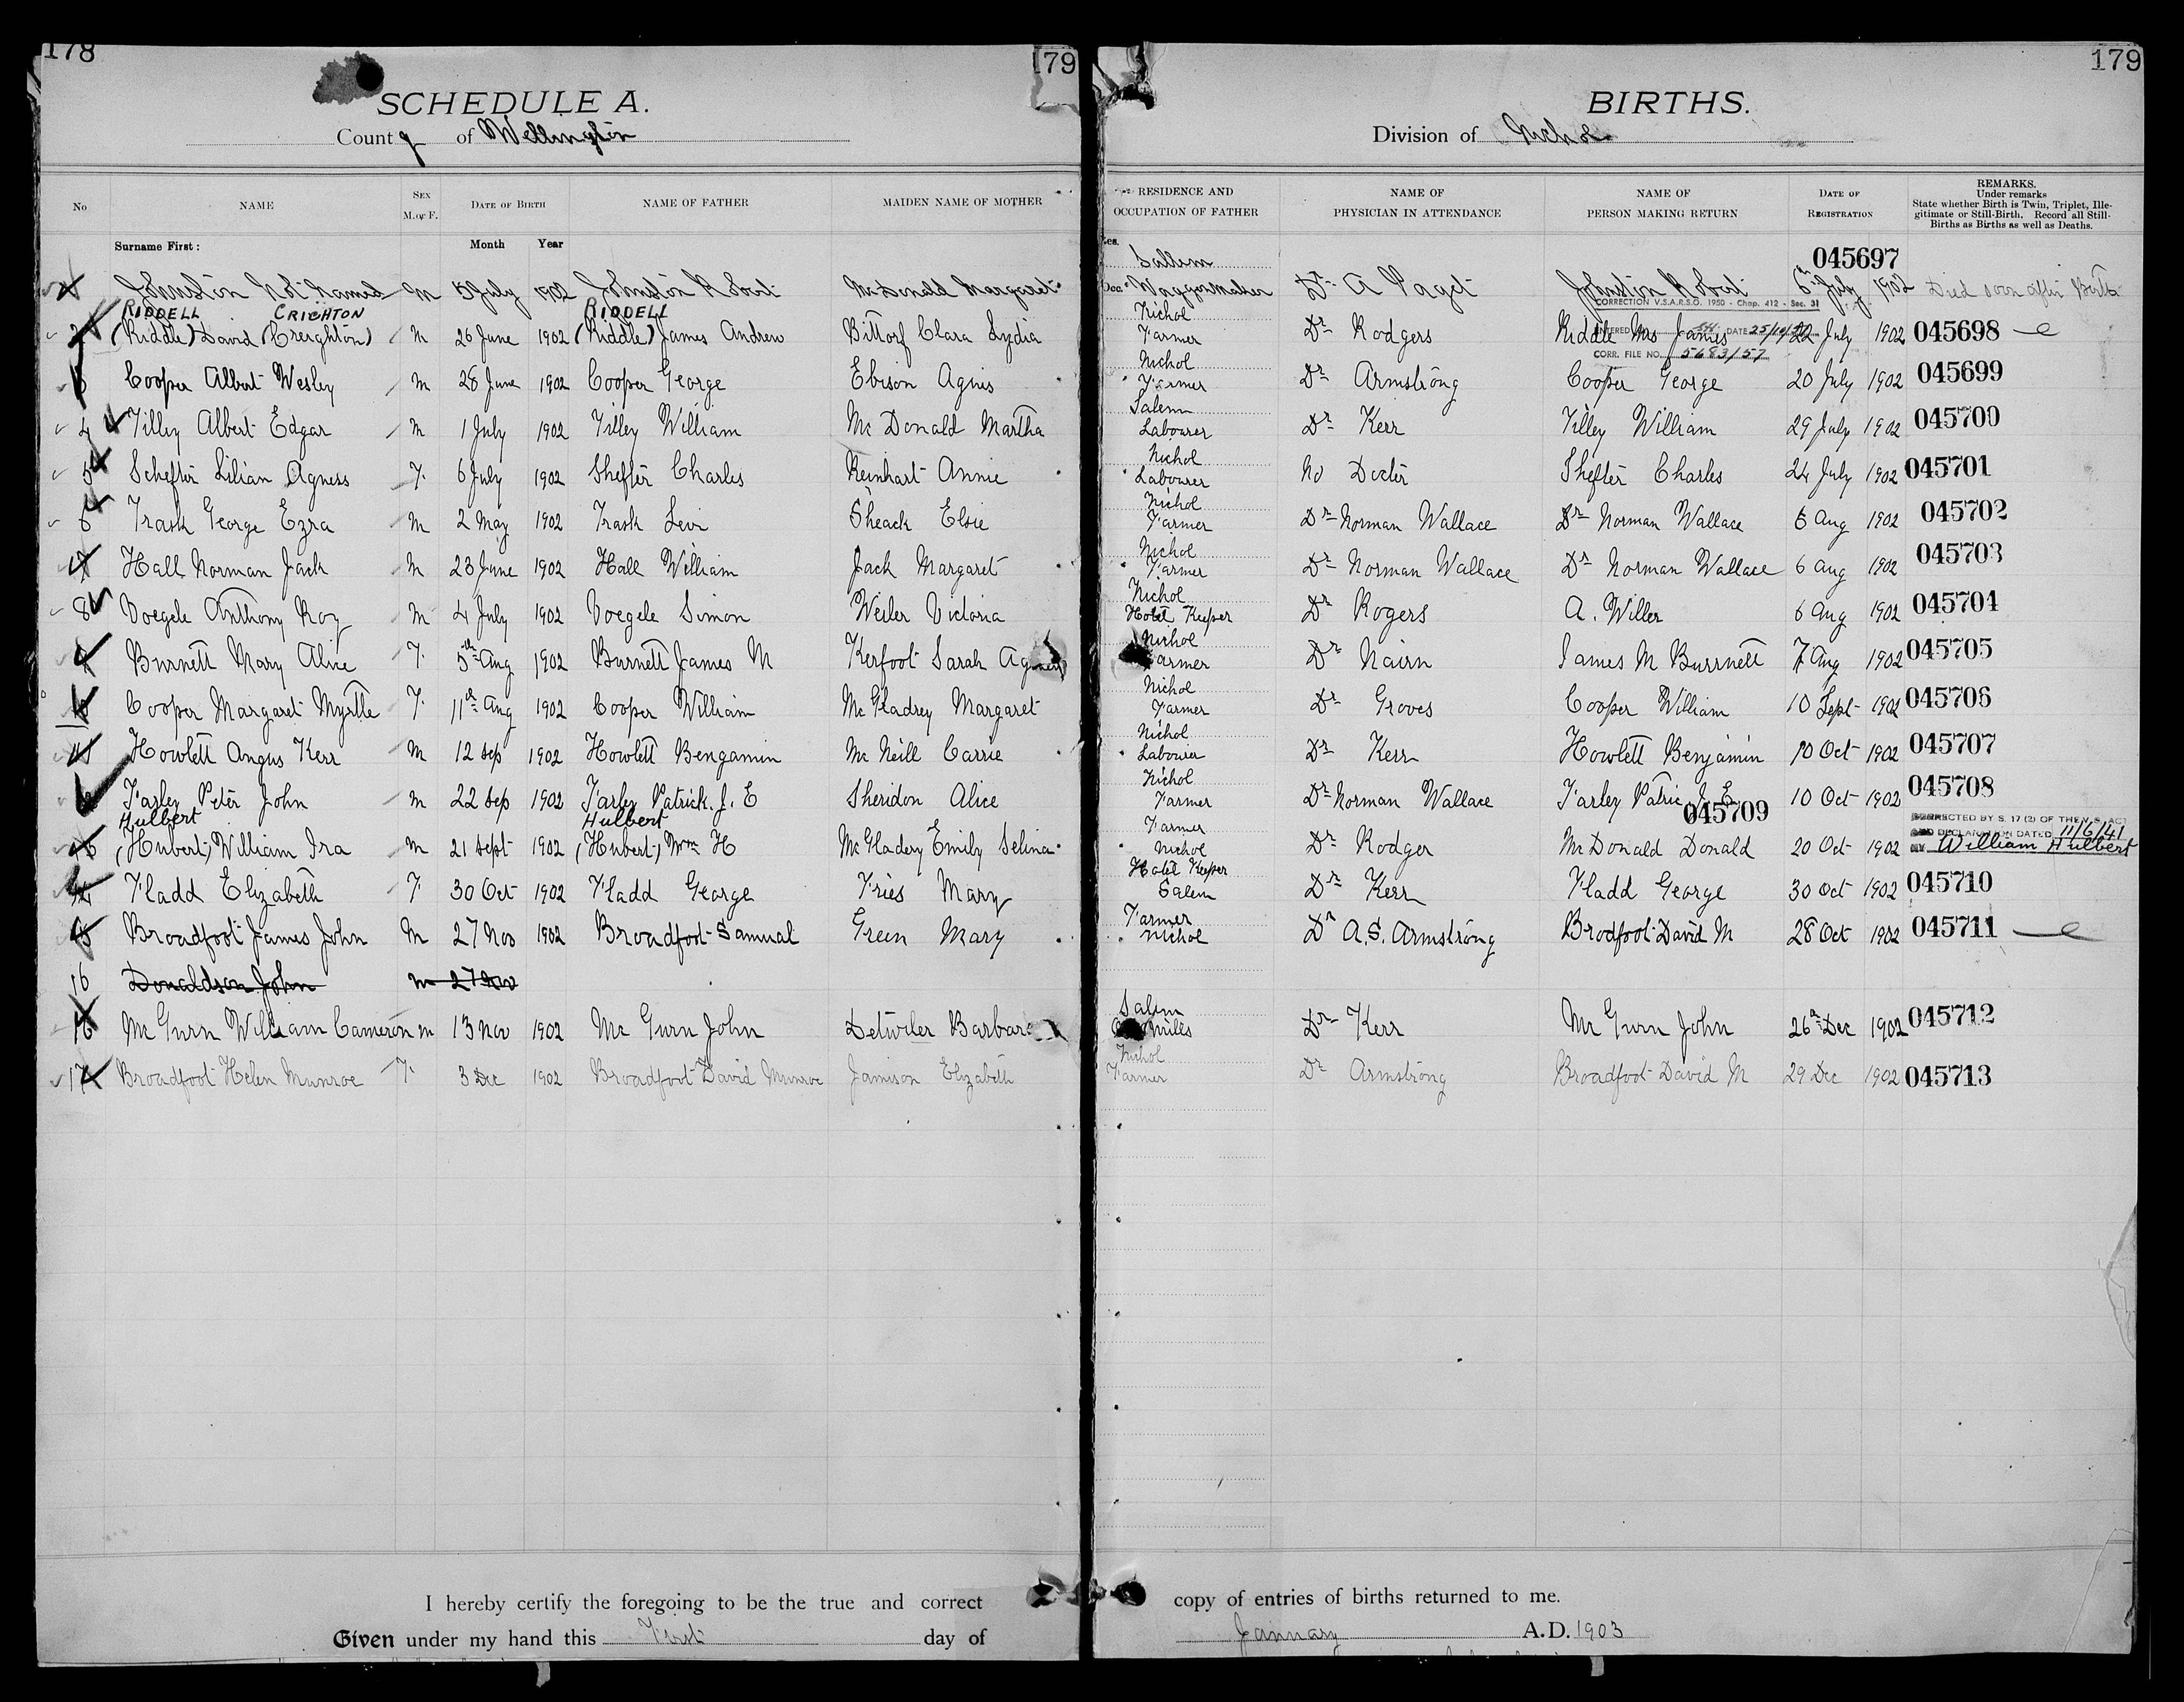 178
179
179
SCHEDULE A.
BIRTHS.
County of Wellington
Division of Nichol
No NAME SEX M. or F. DATE OF BIRTH NAME OF FATHER MAIDEN NAME OF MOTHER RESIDENCE AND OCCUPATION OF FATHER NAME OF PHYSICIAN IN ATTENDANCE NAME OF PERSON MAKING RETURN DATE OF REGISTRATION REMARKS. Under remarks State whether Birth is Twin, Triplet, Illegitimate or Still-Birth. Record all Still-Births as Births as well as Deaths.
Surname First: Month Year Res. Salem 045697
Johnston Not Named M 5 July 1902 Johnston Robert McDonald Margaret Occ. Waggon Maker Dr A Paget Johnston Robert 6th July 1902 Died soon after Birth
RIDDELL CRICHTON RIDDELL Nichol CORRECTION V.S.A.R.S.O. 1950 - Chap. 412 - Sec. 31
2 (Riddle) David (Creighton) M 26 June 1902 (Riddle) James Andrew Bittorf Clara Lydia Farmer Dr Rodgers Riddle Mrs James DATE 25/10/57 22 July 1902 045698
CORR. FILE NO. 5683/57
3 Cooper Albert Wesley M 28 June 1902 Cooper George Ebison Agnis Nichol Farmer Dr Armstrong Cooper George 20 July 1902 045699
4 Tilley Albert Edgar M 1 July 1902 Tilley William McDonald Martha Salem Labourer Dr Kerr Tilley William 29 July 1902 045700
5 Schefter Lilian Agness F. 6 July 1902 Shefter Charles Reinhart Annie Nichol Labourer No Docter Shefter Charles 24 July 1902 045701
6 Trask George Ezra M 2 May 1902 Trask Levi Sheack Elsie Nichol Farmer Dr Norman Wallace Dr Norman Wallace 6 Aug 1902 045702
7 Hall Norman Jack M 23 June 1902 Hall William Jack Margaret Nichol Farmer Dr Norman Wallace Dr Norman Wallace 6 Aug 1902 045703
8 Voegele Anthony Roy M 4 July 1902 Voegele Simon Weiler Victoria Nichol Hotel Keeper Dr Rogers A. Willer 6 Aug 1902 045704
9 Burnett Mary Alice F. 5th Aug 1902 Burnett James M Kerfoot Sarah Agness Nichol Farmer Dr Nairn James M Burrnett 7 Aug 1902 045705
10 Cooper Margaret Myrtle F. 11th Aug 1902 Cooper William McGladrey Margaret Nichol Farmer Dr Groves Cooper William 10 Sept 1902 045706
11 Howlett Angus Kerr M 12 Sep 1902 Howlett Bengamin McNeill Carrie Nichol Labourer Dr Kerr Howlett Benjamin 10 Oct 1902 045707
12 Farley Peter John M 22 Sep 1902 Farley Patrick. J. E Sheridon Alice Nichol Farmer Dr Norman Wallace Farley Patric J. E. 10 Oct 1902 045708
Hulbert Hulbert Farmer 045709 CORRECTED BY S. 17 (2) OF THE V.S. ACT AND DECLARATION DATED 11/6/41
13 (Hubert,) William Ira M 21 Sept 1902 (Hubert,) Wm H McGladery Emily Selina Nichol Dr Rodger McDonald Donald 20 Oct 1902 BY William Hulbert
14 Fladd Elizabeth F 30 Oct 1902 Fladd George Fries Mary Hotel Keeper Salem Dr Kerr Fladd George 30 Oct 1902 045710
15 Broadfoot James John M 27 Nov 1902 Broadfoot Samual Green Mary Farmer Nichol Dr A.S. Armstrong Brodfoot David M 28 Oct 1902 045711
16 Donaldson John M 27 Nov
16 McGurn William Cameron m 13 Nov 1902 McGurn John Detwiler Barbara Salem Dr Kerr McGurn John 26th Dec 1902 045712
17 Broadfoot Helen Munroe F. 3 Dec 1902 Broadfoot David Munroe Jamison Elizabeth Nichol Farmer Dr Armstrong Broadfoot David M 29 Dec 1902 045713
I hereby certify the foregoing to be the true and correct copy of entries of births returned to me.
Given under my hand this First day of January A.D. 1903